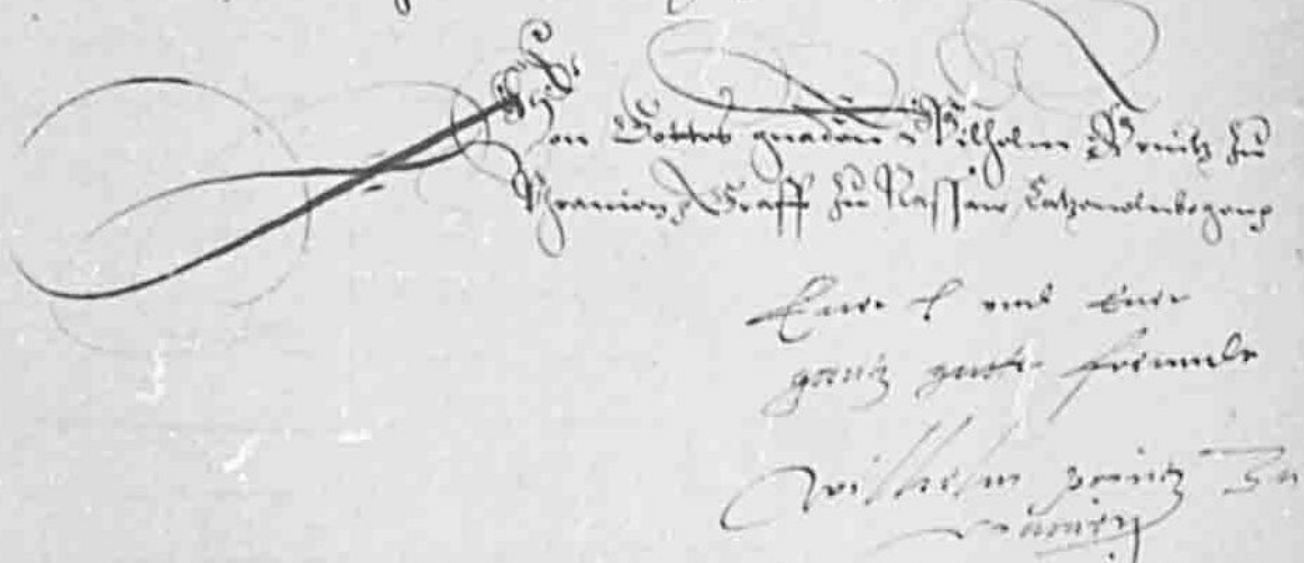 Von Gottes gnaden Wilhelm Printz zu
Vranien, Graff zu Nassaw Catzenelnbogenn
Euer l und Euer
gantz guter freundt
Wilhelm printz zu
Uranien